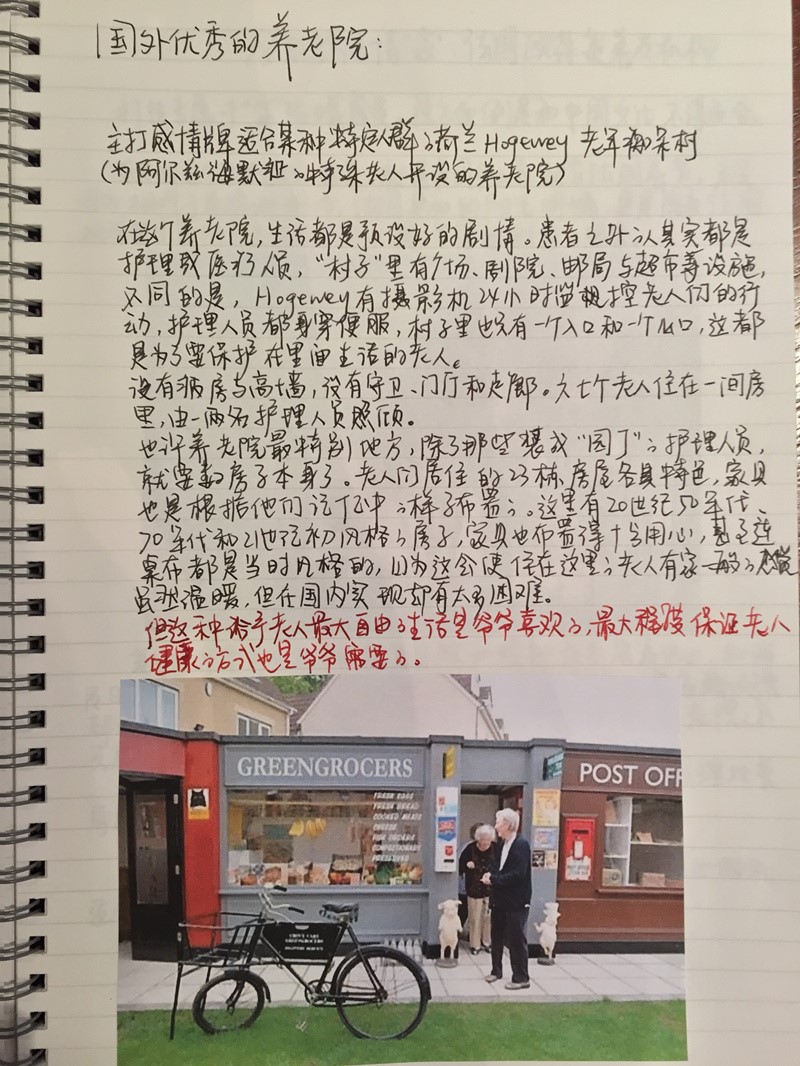 国外优秀的养老院：
主打感情牌适合某种特定人群的荷兰Hogewey 老年痴呆村
(为阿尔兹海默症的特殊老人开设的养老院)
在这个养老院，生活都是预设好的剧情。患者之外的人其实都是
护理或医疗人员，“村子”里有广场、剧院、邮局与超市等设施，
不同的是，Hogewey有摄影机24小时监控老人们的行
动，护理人员都身穿便服，村子里也只有一个入口和一个出口，这都
是为了要保护在里面生活的老人。
没有病房与高墙，没有守卫、门厅和走廊。六七个老人住在一间房
里，由一两名护理人员照顾。
也许养老院最特别地方，除了那些装成“园丁”的护理人员，
就要数房子本身了。老人们居住的23栋房屋各具特色，家具
也是根据他们记忆中的样子布置的。这里有20世纪50年代、
70年代和21世纪初风格的房子，家具也布置得十分用心，甚至连
桌布都是当时风格的，因为这会使住在这里的老人有家一般的感觉
虽然温暖，但在国内实现却有太多困难。
但这种给予老人最大自由的生活是爷爷喜欢的，最大程度保证老人
健康的方式也是爷爷需要的。
GREENGROCERS
FRESH EGGS
FRESH BREAD
COOKED MEATS
CHEESE
CONFECTIONARY
PRESERVES
POST OFF
GREENGROCERS